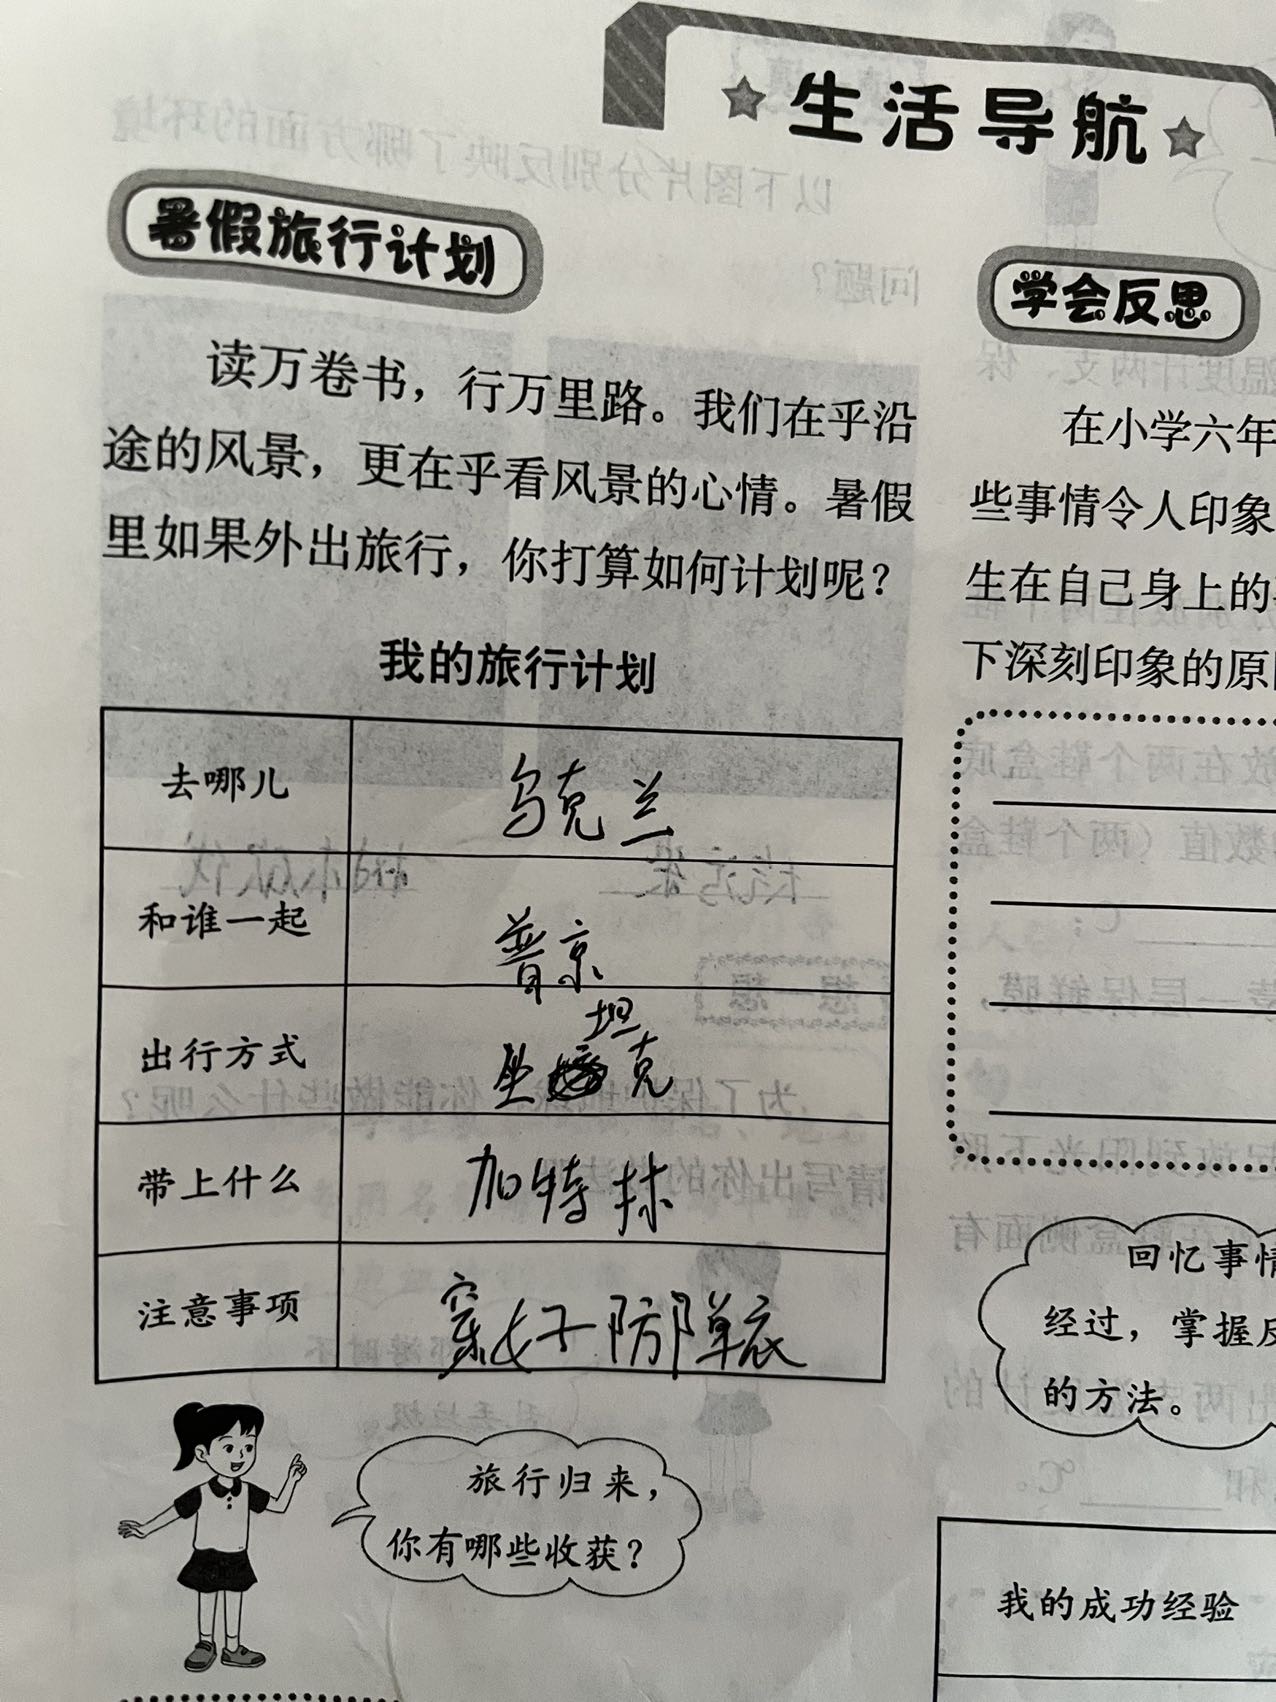 生活导航
暑假旅行计划
读万卷书，行万里路。我们在乎沿
途的风景，更在乎看风景的心情。暑假
里如果外出旅行，你打算如何计划呢？
我的旅行计划
去哪儿 乌克兰
和谁一起 普京
出行方式 坐坦克
带上什么 加特林
注意事项 穿好防弹衣
旅行归来，
你有哪些收获？
学会反思
在小学六年
些事情令人印象
生在自己身上的
下深刻印象的原
回忆事情
经过，掌握反
的方法。
我的成功经验